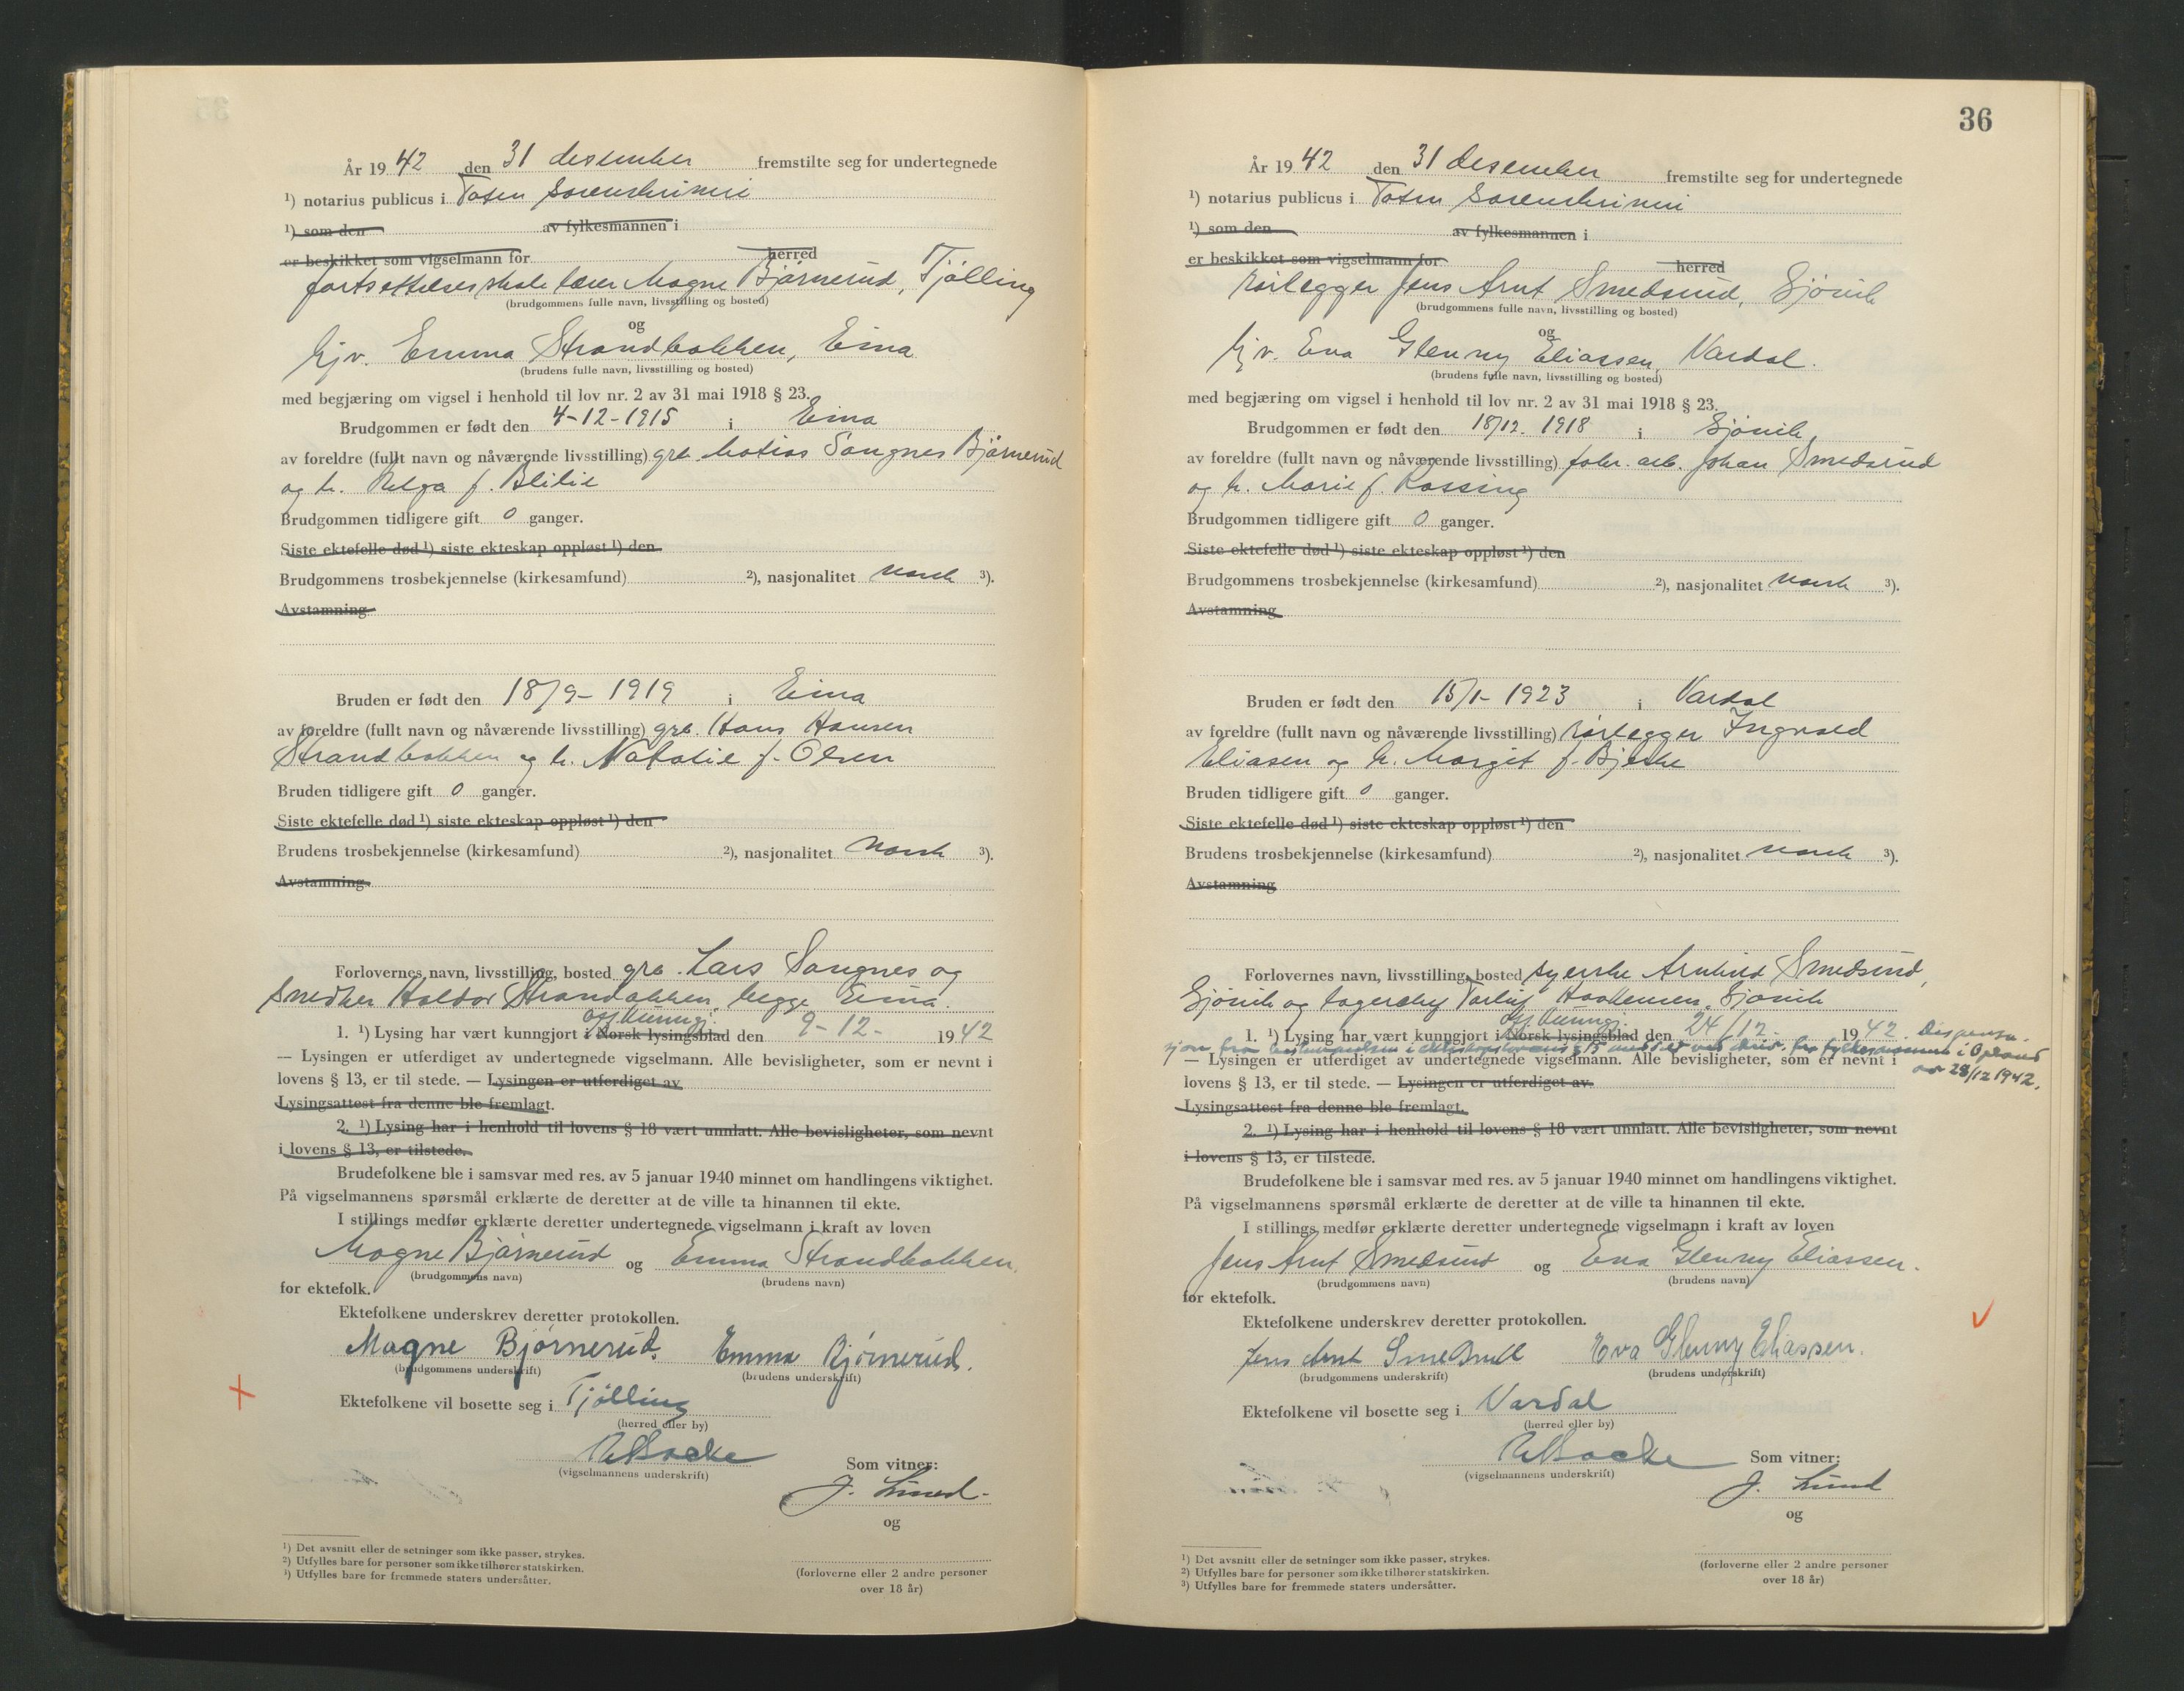 År 19 42 den 31 desember fremstilte seg for undertegnede
¹) notarius publicus i Toten Sorenskriveri
¹) som den av fylkesmannen i
er beskikket som vigselmann for herred
fortsettelsesskolelærer Magne Bjørnerud, Tjølling
(brudgommens fulle navn, livsstilling og bosted)
og
hjv. Emma Strandbakken, Eina
(brudens fulle navn, livsstilling og bosted)
med begjæring om vigsel i henhold til lov nr. 2 av 31 mai 1918 § 23.
Brudgommen er født den 4-12-1915 i Eina
av foreldre (fullt navn og nåværende livsstilling) grb. Matias Sangnes Bjørnerud
og h. Helga f. Blilie
Brudgommen tidligere gift 0 ganger.
Siste ektefelle død ¹) siste ekteskap oppløst ¹) den
Brudgommens trosbekjennelse (kirkesamfund) ²), nasjonalitet norsk ³).
Avstamning
Bruden er født den 18/9- 1919 i Eina
av foreldre (fullt navn og nåværende livsstilling) grb. Hans Hansen
Strandbakken og h. Natalie f. Olsen
Bruden tidligere gift 0 ganger.
Siste ektefelle død ¹) siste ekteskap oppløst ¹) den
Brudens trosbekjennelse (kirkesamfund) ²), nasjonalitet norsk ³).
Avstamning
Forlovernes navn, livsstilling, bosted grb. Lars Sangnes og
snedker Haldor Strandbakken, begge Eina.
off. kunngj.
1. ¹) Lysing har vært kunngjort i Norsk lysingsblad den 9-12- 19 42
— Lysingen er utferdiget av undertegnede vigselmann. Alle bevisligheter, som er nevnt i
lovens § 13, er til stede. — Lysingen er utferdiget av
Lysingsattest fra denne ble fremlagt.
2. ¹) Lysing har i henhold til lovens § 18 vært unnlatt. Alle bevisligheter, som nevnt
i lovens § 13, er tilstede.
Brudefolkene ble i samsvar med res. av 5 januar 1940 minnet om handlingens viktighet.
På vigselmannens spørsmål erklærte de deretter at de ville ta hinannen til ekte.
I stillings medfør erklærte deretter undertegnede vigselmann i kraft av loven
Magne Bjørnerud og Emma Strandbakken.
(brudgommens navn) (brudens navn)
for ektefolk.
Ektefolkene underskrev deretter protokollen.
Magne Bjørnerud. Emma Bjørnerud.
(brudgommens underskrift) (brudens underskrift)
Ektefolkene vil bosette seg i Tjølling
(herred eller by)
(vigselmannens underskrift)
Som vitner:
J. Lund
og
(forloverne eller 2 andre personer
over 18 år)
¹) Det avsnitt eller de setninger som ikke passer, strykes.
²) Utfylles bare for personer som ikke tilhører statskirken.
³) Utfylles bare for fremmede staters undersåtter.
36
År 19 42 den 31 desember fremstilte seg for undertegnede
¹) notarius publicus i Toten Sorenskriveri
¹) som den av fylkesmannen i
er beskikket som vigselmann for herred
rørlegger Jens Arnt Smedsrud, Gjøvik
(brudgommens fulle navn, livsstilling og bosted)
og
hjv. Eva Glenny Eliassen, Vardal.
(brudens fulle navn, livsstilling og bosted)
med begjæring om vigsel i henhold til lov nr. 2 av 31 mai 1918 § 23.
Brudgommen er født den 18/12- 1918 i Gjøvik,
av foreldre (fullt navn og nåværende livsstilling) fabr. arb. Johan Smedsrud
og h. Marie f. Rossing
Brudgommen tidligere gift 0 ganger.
Siste ektefelle død ¹) siste ekteskap oppløst ¹) den
Brudgommens trosbekjennelse (kirkesamfund) ²), nasjonalitet norsk ³).
Avstamning
Bruden er født den 15/1- 1923 i Vardal
av foreldre (fullt navn og nåværende livsstilling) rørlegger Ingvald
Eliasen og h. Margit f. Bjerke
Bruden tidligere gift 0 ganger.
Siste ektefelle død ¹) siste ekteskap oppløst ¹) den
Brudens trosbekjennelse (kirkesamfund) ²), nasjonalitet norsk ³).
Avstamning
Forlovernes navn, livsstilling, bosted syerske Arnhild Smedsrud,
Gjøvik og Haakensen, Gjøvik
off. kunngj.
1. ¹) Lysing har vært kunngjort i Norsk lysingsblad den 24/12- 19 42. Dispensa-
sjon fra bestemmelsen i ekteskapslovens § 15 meddelt ved skriv. fra fylkesmannen i Opland
av 28/12 1942.
— Lysingen er utferdiget av undertegnede vigselmann. Alle bevisligheter, som er nevnt i
lovens § 13, er til stede. — Lysingen er utferdiget av
Lysingsattest fra denne ble fremlagt.
2. ¹) Lysing har i henhold til lovens § 18 vært unnlatt. Alle bevisligheter, som nevnt
i lovens § 13, er tilstede.
Brudefolkene ble i samsvar med res. av 5 januar 1940 minnet om handlingens viktighet.
På vigselmannens spørsmål erklærte de deretter at de ville ta hinannen til ekte.
I stillings medfør erklærte deretter undertegnede vigselmann i kraft av loven
Jens Arnt Smedsrud og Eva Glenny Eliassen.
(brudgommens navn) (brudens navn)
for ektefolk.
Ektefolkene underskrev deretter protokollen.
Jens Arnt Smedsrud Eva Glenny Eliassen.
(brudgommens underskrift) (brudens underskrift)
Ektefolkene vil bosette seg i Vardal
(herred eller by)
(vigselmannens underskrift)
Som vitner:
J. Lund
og
(forloverne eller 2 andre personer
over 18 år)
¹) Det avsnitt eller de setninger som ikke passer, strykes.
²) Utfylles bare for personer som ikke tilhører statskirken.
³) Utfylles bare for fremmede staters undersåtter.